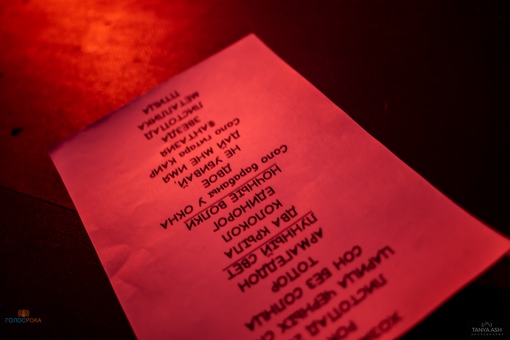 ЛИСТОПАД
ЦАРИЦА ЧЕРНЫХ
СОН БЕЗ СОЛНЦА
ТОПОР
АРМАГЕДДОН
ЛУННЫЙ СВЕТ
ДВА КРЫЛА
КОЛОКОЛ
ЕДИНОРОГ
НОЧНЫЕ ВОЛКИ
Соло барабаны У ОКНА
ДВОЕ
НЕ УБИВАЙ,
ДАЙ МНЕ ИМЯ
Соло гитара КАИР
ФАНТАЗИЯ
ЗВЕЗДА
ЛИСТОПАД
МЕТАЛЛИКА
ПТИЦА
ГОЛОСРОКА
TANYA ASH